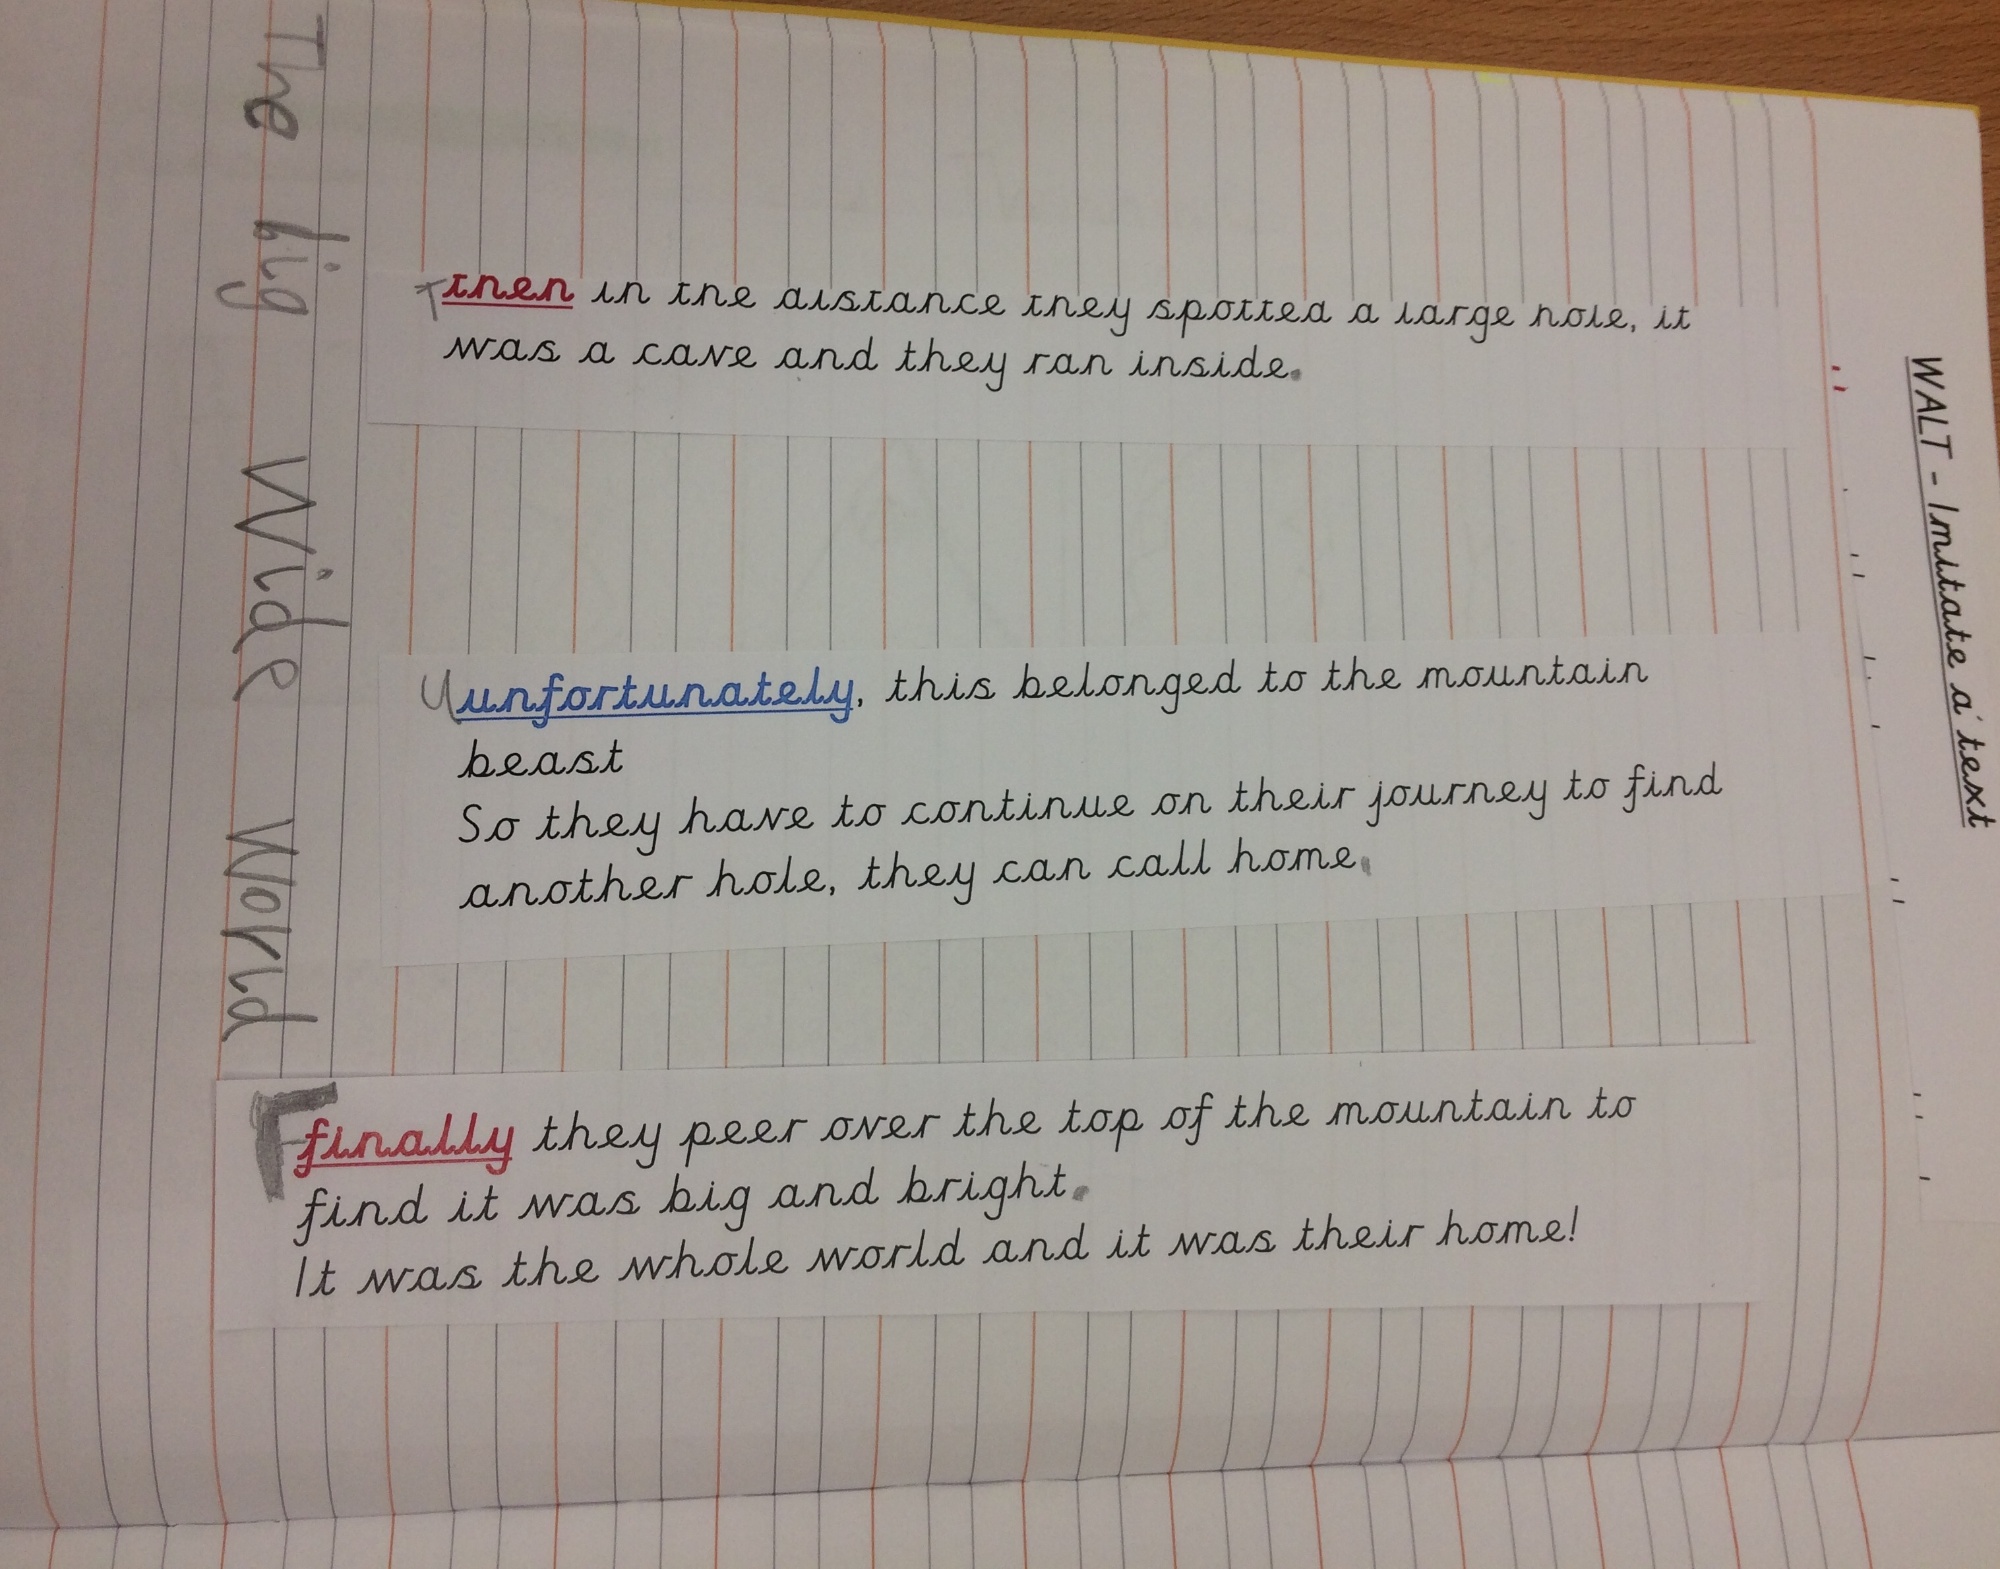 WALT - Imitate a text
The big Wide World
T then in the distance they spotted a large hole, it
was a cave and they ran inside.
U unfortunately, this belonged to the mountain
beast
So they have to continue on their journey to find
another hole, they can call home.
F finally they peer over the top of the mountain to
find it was big and bright.
It was the whole world and it was their home!